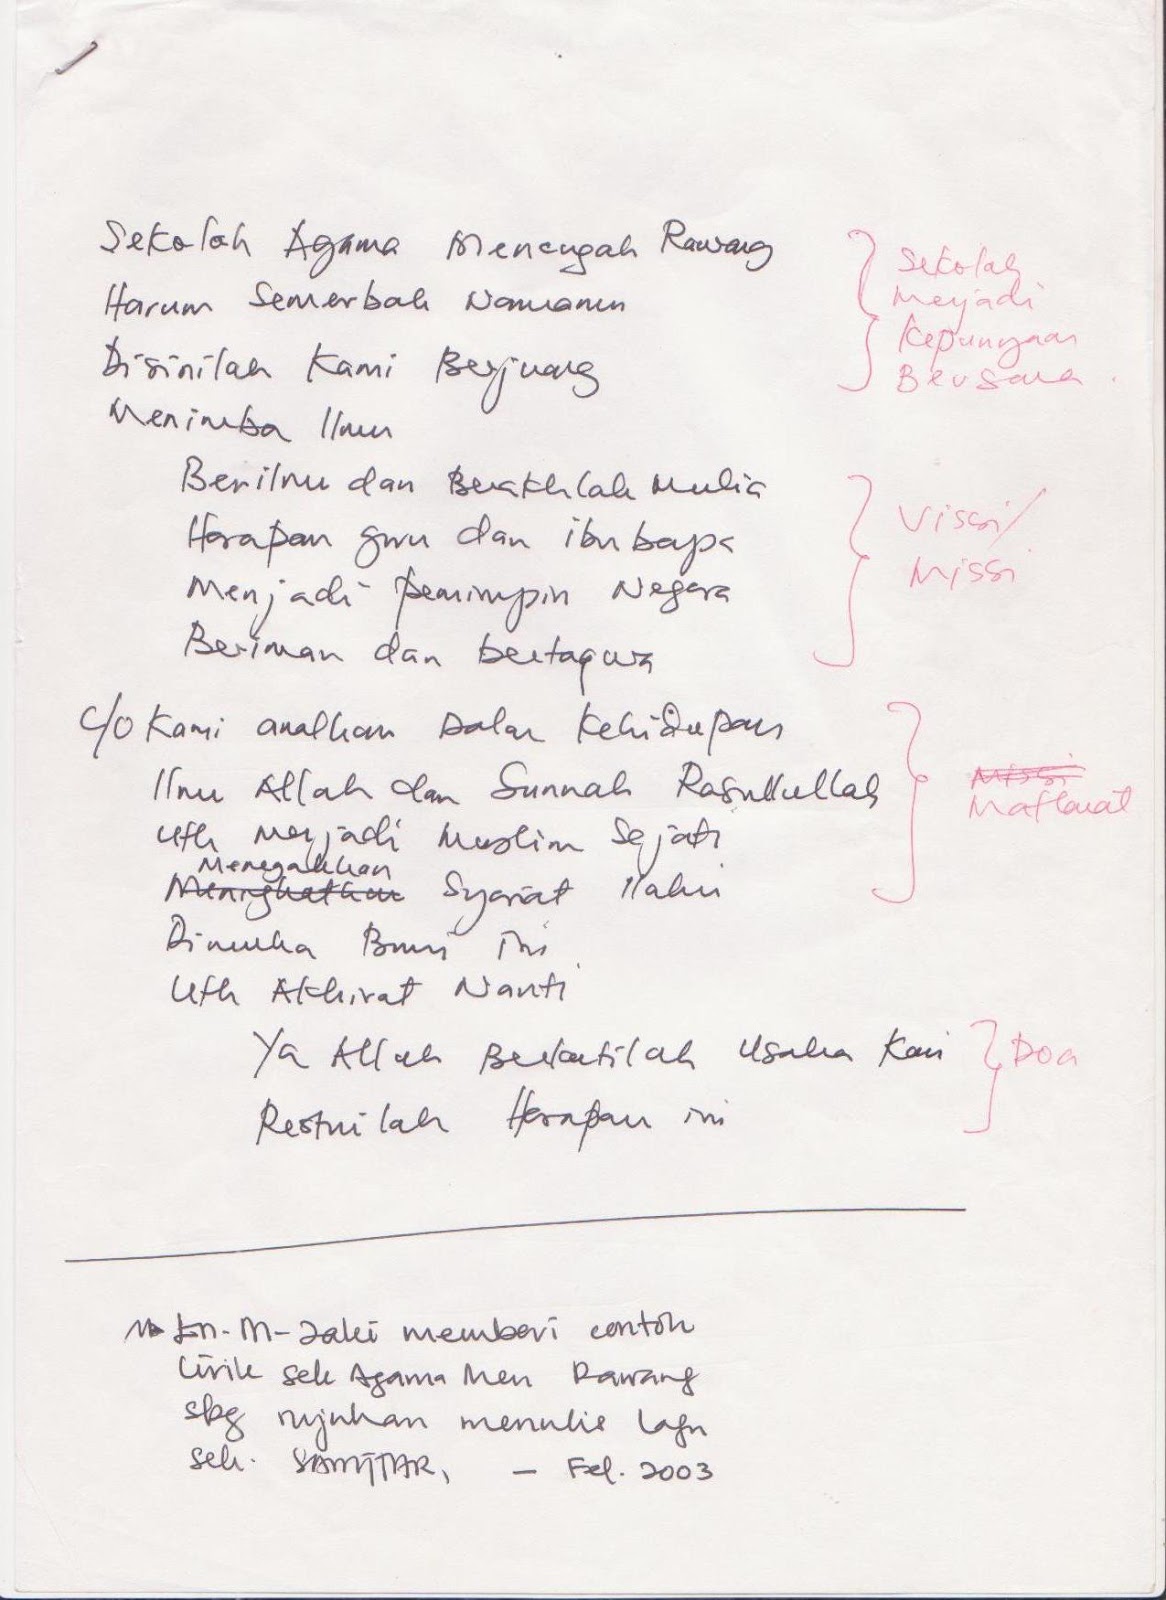 Sekolah Agama Menengah Rawang
Harum Semerbak Namamu
Disinilah Kami Berjuang
Menimba Ilmu
Sekolah
Menjadi
Kepunyaan
Bersama.
Berilmu dan Berakhlak Mulia
Harapan guru dan ibu bapa
Menjadi pemimpin Negara
Beriman dan bertaqwa
Vissi/
Missi
C/O Kami amalkan Dalam Kehidupan
Ilmu Allah dan Sunnah Rasullullah
Utk Menjadi Muslim Sejati
Menegakkan
Meningkatkan Syariat Ilahi
Dimuka Bumi ini
Utk Akhirat Nanti
Missi
Matlamat
Ya Allah Berkatilah Usaha Kami
Restuilah Harapan ini
Doa
En. M. Zaki memberi contoh
Lirik sek Agama Men Rawang
sbg rujukan menulis lagu
sek. SAMTTAR, – Feb. 2003